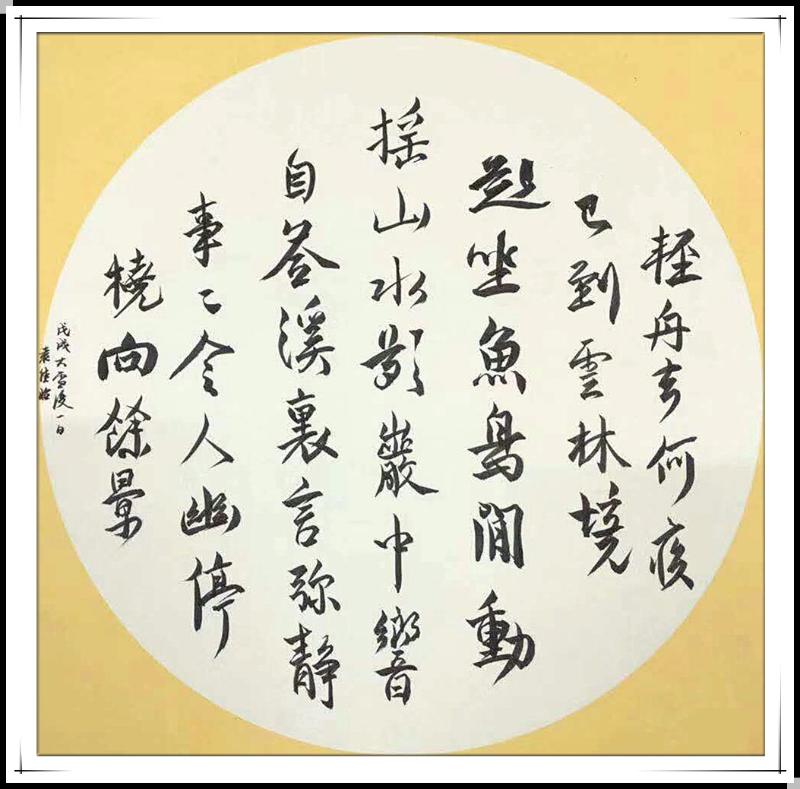 輕舟去何疾
已到雲林境
起坐魚鳥間動
搖山水影巖中響
自荅溪裏言弥靜
事〻令人幽停
橈向餘景
戊戌大雪後一日
袁